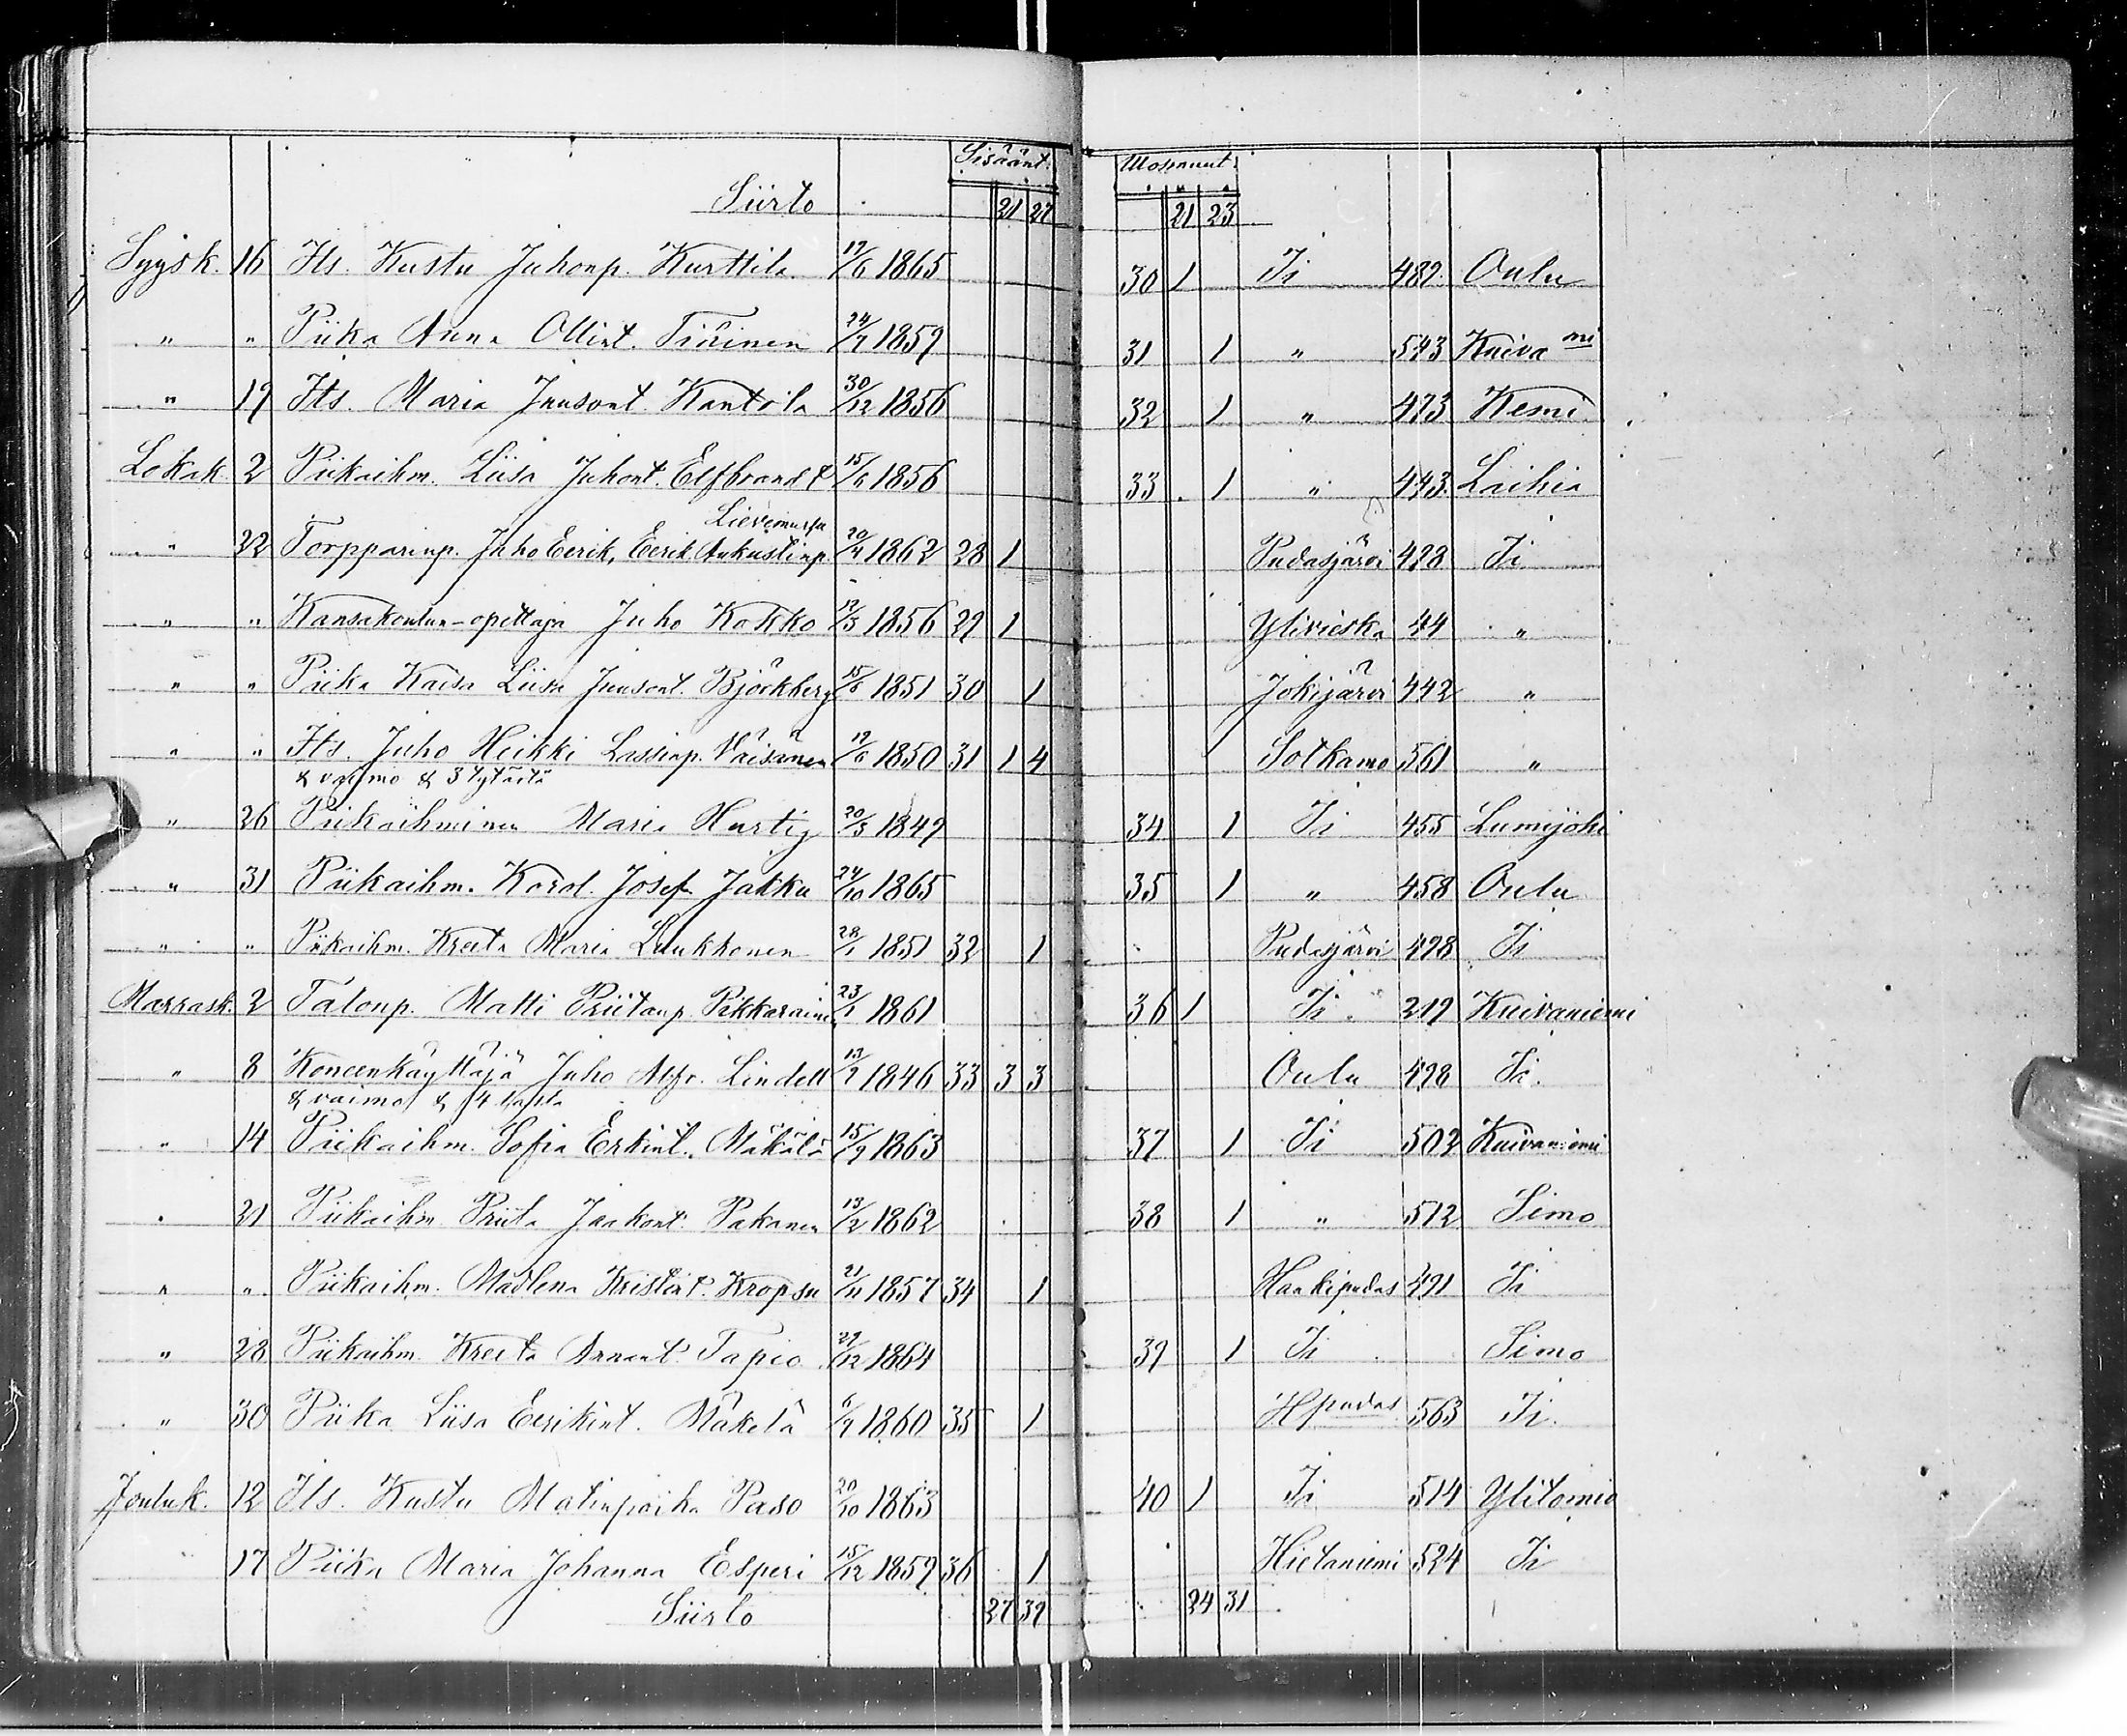 Sisäänt. Ulosmuut.
Siirto 21 27 21 23
Syysk. 16 Its. Kustu Juhonp. Kurttila 1865 30 1 Ii 482 Oulu
" " Piika Anna Ollint. 24/7 1859 31 1 " 543 Kuiva mi
" 19 Its. Maria Juusont. Kantola 30/12 1856 32 1 " 473 Kemi
Lokak. 2 Piikaihm. Liisa Juhont. Elfbrandt 15/6 1856 33 1 " 443 Laihia
Lievemursu
" 22 Torpparinp. Juho Eerik, Eerik Aukustinp. 1862 28 1 Pudasjärvi 498 Ii
" " Kansakoulun-opettaja Juho Kokko 1856 29 1 Ylivieska 44 "
" " Piika Kaisa Liisa Juusont. Björkberg 15/8 1851 30 1 Jokijärvi 442 "
" " Its. Juho Heikki Lassinp. Väisänen 1850 31 1 4 Sotkamo 561 "
& vaimo & 3 tytärtä
" 26 Piikaihminen Maria Hurtig 20/3 1849 34 1 Ii 455 Lumijoki
" 31 Piikaihm. Karol. Josef. Jakku 24/10 1865 35 1 " 458 Oulu
" " Piikaihm. Kreeta Maria Luukkonen 28/1 1851 32 1 Pudasjärvi 498 Ii
Marrask. 2 Talonp. Matti Priitanp. Pikkarainen 23/1 1861 36 1 Ii 219 Kuivaniemi
" 8 Koneenkäyttäjä Juho Alfr. Lindell 1846 33 3 3 Oulu 498 Ii.
& vaimo & 4 lasta
" 14 Piikaihm. Sofia Erkint. Mäkälä 15/9 1863 37 1 Ii 502 Kuivaniemi
" 21 Piikaihm Priita Jaakont. Pakanen 13/2 1862 38 1 " 512 Simo
" " Piikaihm. Madlena Kristint. Kropsu 21/11 1857 34 1 Haukipudas 491 Ii
" 28 Piikaihm. Kreeta Arnant. Tapio 1864 39 1 Ii Simo
" 30 Piika Liisa Eerikint. Mäkelä 1860 35 1 Hpudas 563 Ii.
Jouluk. 12 Its. Kustu Matinpoika Paso 20/10 1863 40 1 Ii 514 Ylitornio
17 Piika Maria Johanna Esperi 15/12 1859 36 1 Hietaniemi 524 Ii
Siirto 27 39 24 31